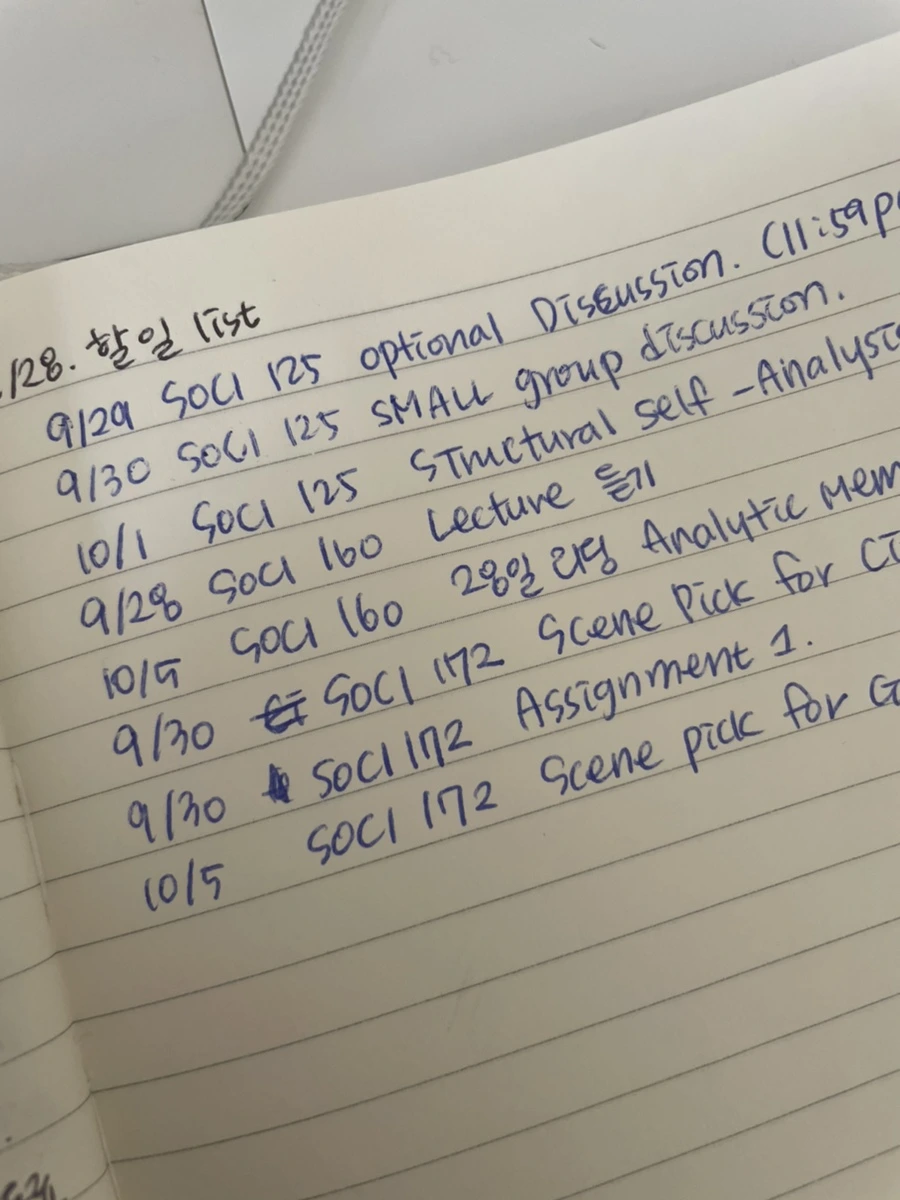 /28. 할일 list
9/29 SOCI 125 optional Discussion. (11:59p
9/30 SOCI 125 SMALL group discussion.
10/1 SOCI 125 Structural self-Analysis
9/28 SOCI 160 Lecture 듣기
10/5 SOCI 160 28일 리딩 Analytic Mem
9/30 SOCI 172 Scene Pick for Ci
9/30 SOCI 172 Assignment 1.
10/5 SOCI 172 Scene pick for G